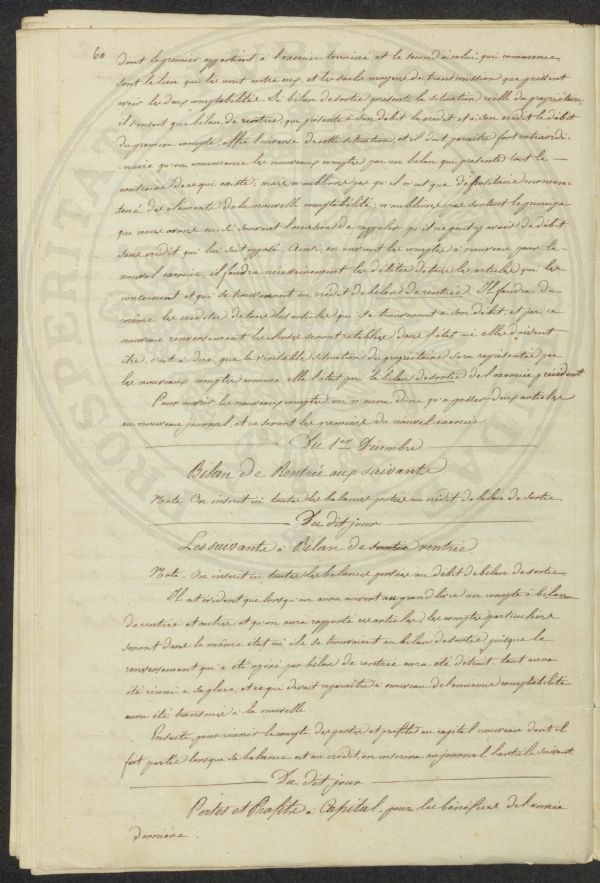 60
dont le premier appartient à l'exercice terminé et le second à celui qui commence,
sont le lien qui les unit entre eux, et les seuls moyens de transmission que puissent
avoir les deux comptabilités. Si bilan de sortie présente la situation réelle du propriétaire,
il s'ensuit que bilan de rentrée, qui présente à son débit le crédit et à son crédit le débit
du premier compte, offre l'inverse de cette situation, et il doit paraître fort extraordi-
naire qu'on commence les nouveaux comptes par un bilan qui présente tout le
contraire de ce qui existe; mais n'oublions pas qu'il n'est que dépositaire momen-
tané des éléments de la nouvelle comptabilité; n'oublions pas surtout le principe
que nous avons eu si souvent l'occasion de rappeler qu'il ne peut y avoir de débit
sans crédit qui lui soit opposé. Ainsi, en ouvrant les comptes à nouveau pour le
nouvel exercice, il faudra nécessairement les débiter de tous les articles qui les
concernent et qui se trouveront au crédit de bilan de rentrée. Il faudra de
même les créditer de tous les articles qui se trouveront à son débit, et par ce
nouveau renversement les choses seront rétablies dans l'état où elles doivent
être, c'est à dire, que la véritable situation du propriétaire sera représentée par
les nouveaux comptes comme elle l'était par le bilan de sortie de l'exercice précédent.
Pour ouvrir les nouveaux comptes, on n'aura donc qu'à passer deux articles
au nouveau journal, et ce seront les premiers du nouvel exercice
Du 1er Décembre
Bilan de Rentrée aux suivants
Nota. On inscrit ici toutes les balances portées au crédit de bilan de sortie
Du dit jour
Les suivants à Bilan de sortie rentrée
Nota. On inscrit ici, toutes les balances portées au débit de bilan de sortie.
Il est évident que lorsqu'on aura ouvert au grand livre un compte à bilan
de rentrée et autres et qu'on aura rapporté ces articles, les comptes particuliers
seront dans le même état où ils se trouvaient au bilan de sortie, puisque le
renversement qui a été opéré par bilan de rentrée aura été détruit, tout aura
été réuni à sa place, et ce qui devait reparaître à nouveau de l'ancienne comptabilité
aura été transmis à la nouvelle.
Ensuite, pour réunir le compte des pertes et profits au capital nouveau dont il
fait partie lorsque sa balance est au crédit, on inscrira au journal l'article suivant.
Du dit jour
Pertes et Profits à Capital, pour les bénéfices de l'année
dernière.